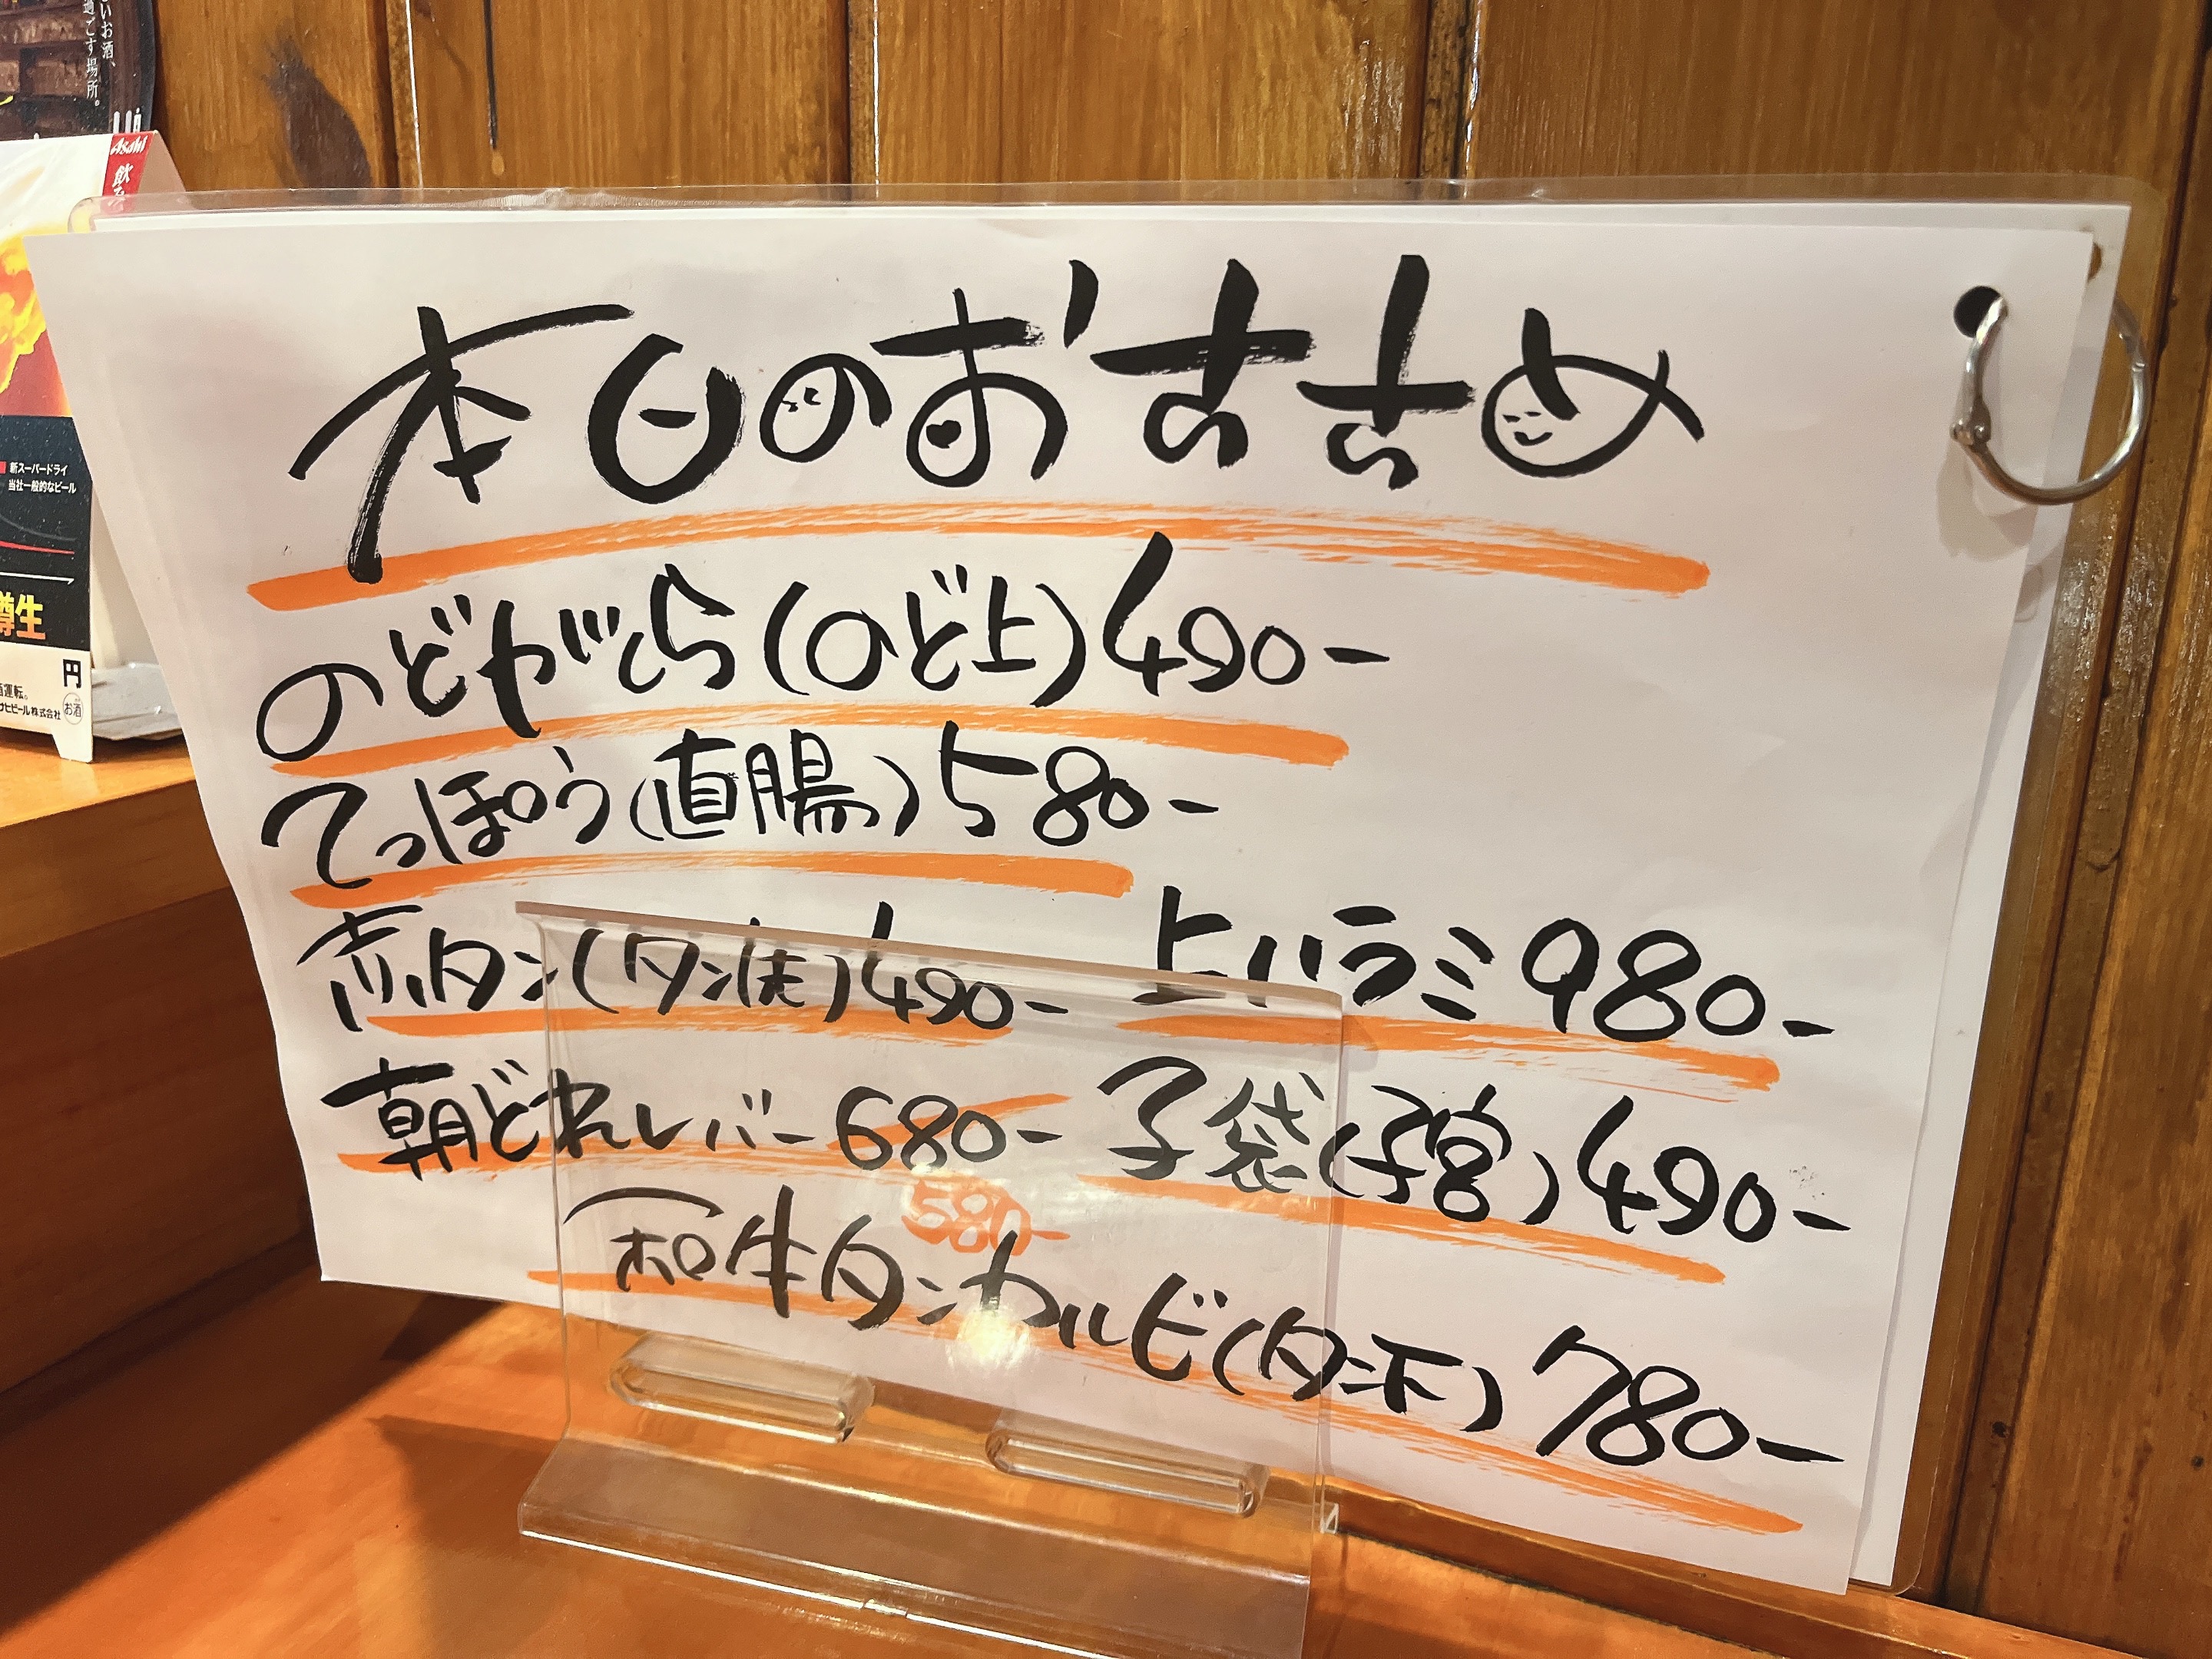 いお酒、
過ごす場所。
Asahi
飲み
新スーパードライ
当社一般的なビール
樽生
円
酒運転。
サヒビール株式会社
お酒
本日のおすすめ
のどがしら(のど上)490-
てっぽう(直腸)580-
赤タン(タン先)490- 上ハラミ980-
朝どれレバー680- 子袋(子宮)490-
580-
和牛タンカルビ(タン下)780-